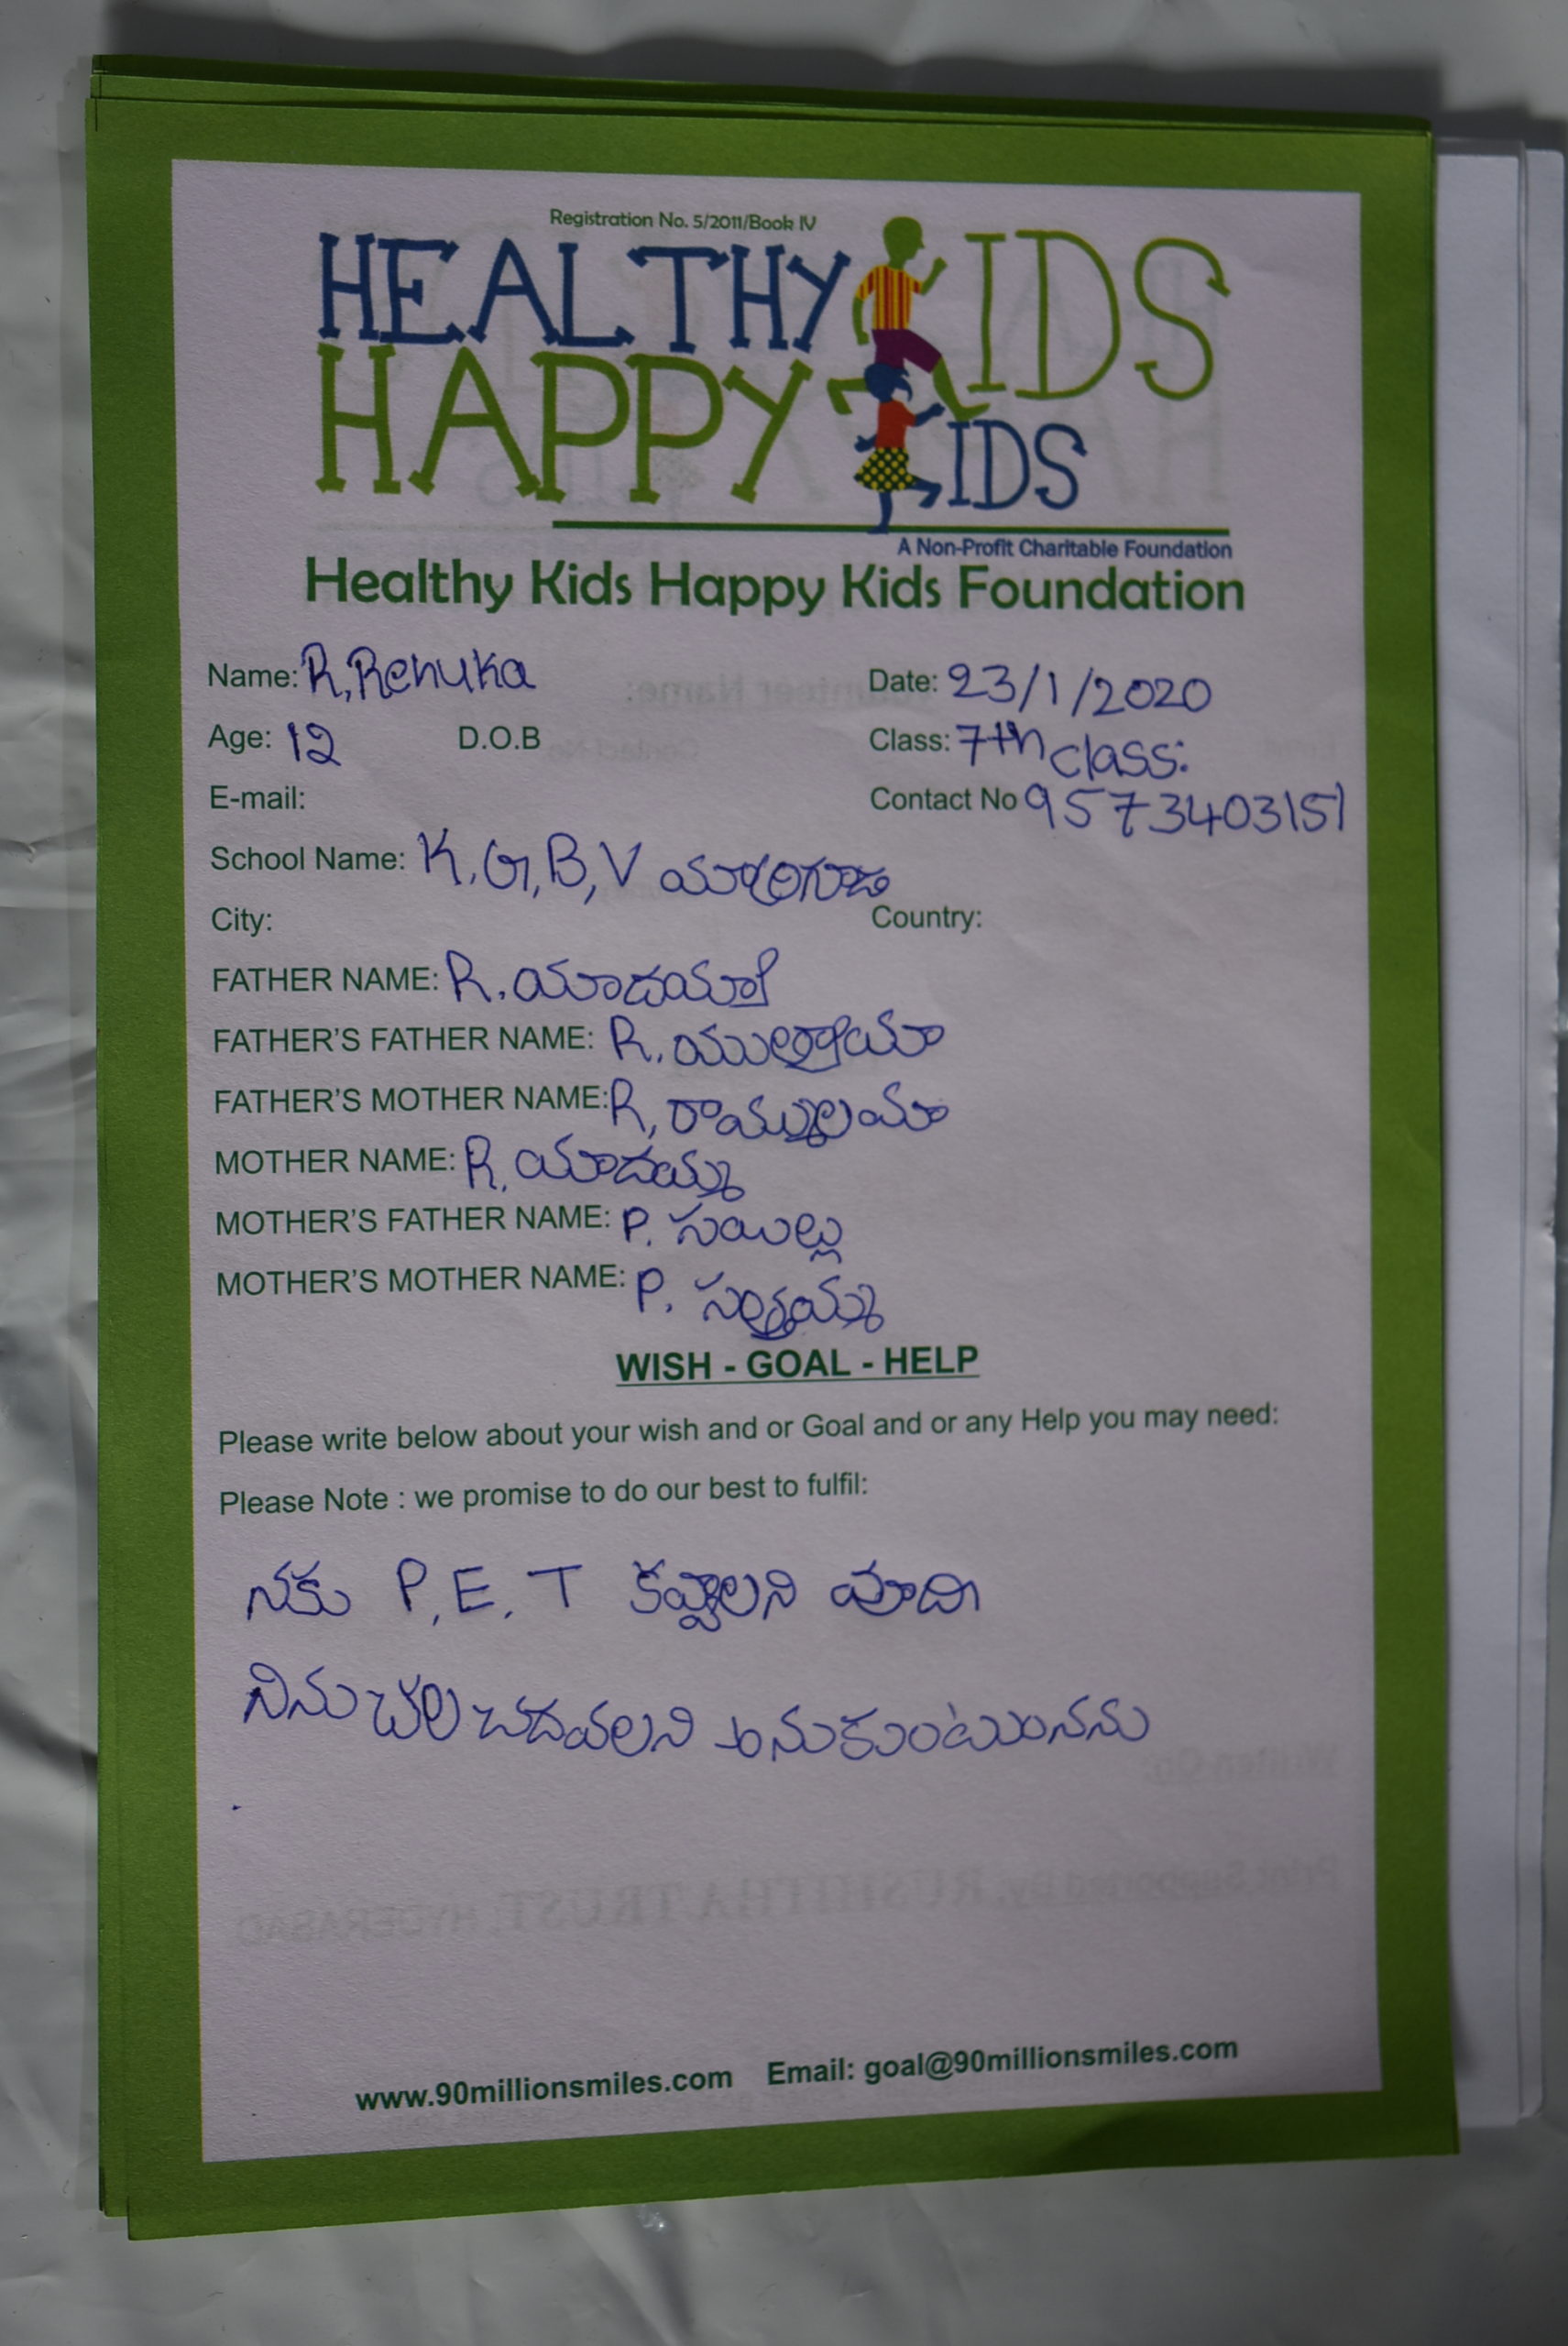 Registration No. 5/2011/Book IV
HEALTHY KIDS
HAPPY KIDS
A Non-Profit Charitable Foundation
Healthy Kids Happy Kids Foundation
Name: R,Renuka Date: 23/1/2020
Age: 12 D.O.B Class: 7th class:
E-mail: Contact No 9573403151
School Name: K,G,B,V
City: Country:
FATHER NAME: R.
FATHER'S FATHER NAME: R.
FATHER'S MOTHER NAME: R, రాములమా
MOTHER NAME: R. యాదమ్మ
MOTHER'S FATHER NAME: P. సయిల్లు
MOTHER'S MOTHER NAME: P. సత్తమ్మ
WISH - GOAL - HELP
Please write below about your wish and or Goal and or any Help you may need:
Please Note : we promise to do our best to fulfil:
నకు P,E,T కవ్వాలని వూది
నిను చల చదవలని అనుకుంటునను
www.90millionsmiles.com Email: goal@90millionsmiles.com